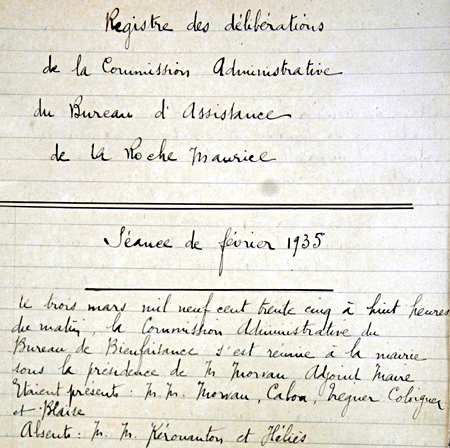 Registre des délibérations
de la Commission Administrative
du Bureau d'Assistance
de la Roche Maurice
Séance de février 1935
Le trois mars mil neuf cent trente cinq à huit heures
du matin, la Commission Administrative du
Bureau de Bienfaisance s'est reunie à la mairie
sous la présidence de M Morvan Adjoint Maire
Etaient présents: M.M. Morvan, Cabon, Treguer
et Blaise
Absents: M. M. Kérouanton et Héliès